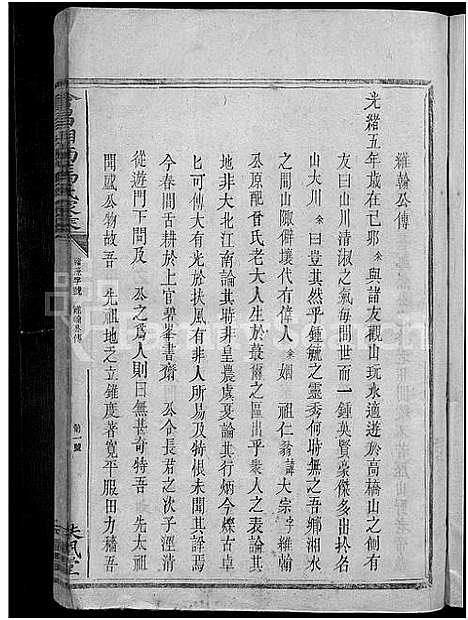 維翰公傳
光緒五年歲在己卯余與諸友觀山玩水適遊於高橋山之側有
友曰山川清淑之氣每間世而一鍾英賢豪傑多出於名
山大川余曰豈其然乎鍾毓之靈秀何時無之吾鄉湘水
之間山陬僻壤代有偉人余姻祖仁翁諱大宗字維翰
公原配曾氏老大人生於蕞爾之區出乎衆人之表論其
地非大北江南論其時非皇農虞夏論其行炳今爍古卓
乜可傳大有光於扶風有非人所易及特恨未聞其詳焉
今春間舌耕於上官碧峯書齋公令長君之次子涇清
從遊門下問及公之爲人則曰無甚奇特吾先太祖
問感公物故吾先祖地之立錐度著寬平服田力穡吾
會昌湘南馬氏家乘
維翰公傳
第一號
扶風堂